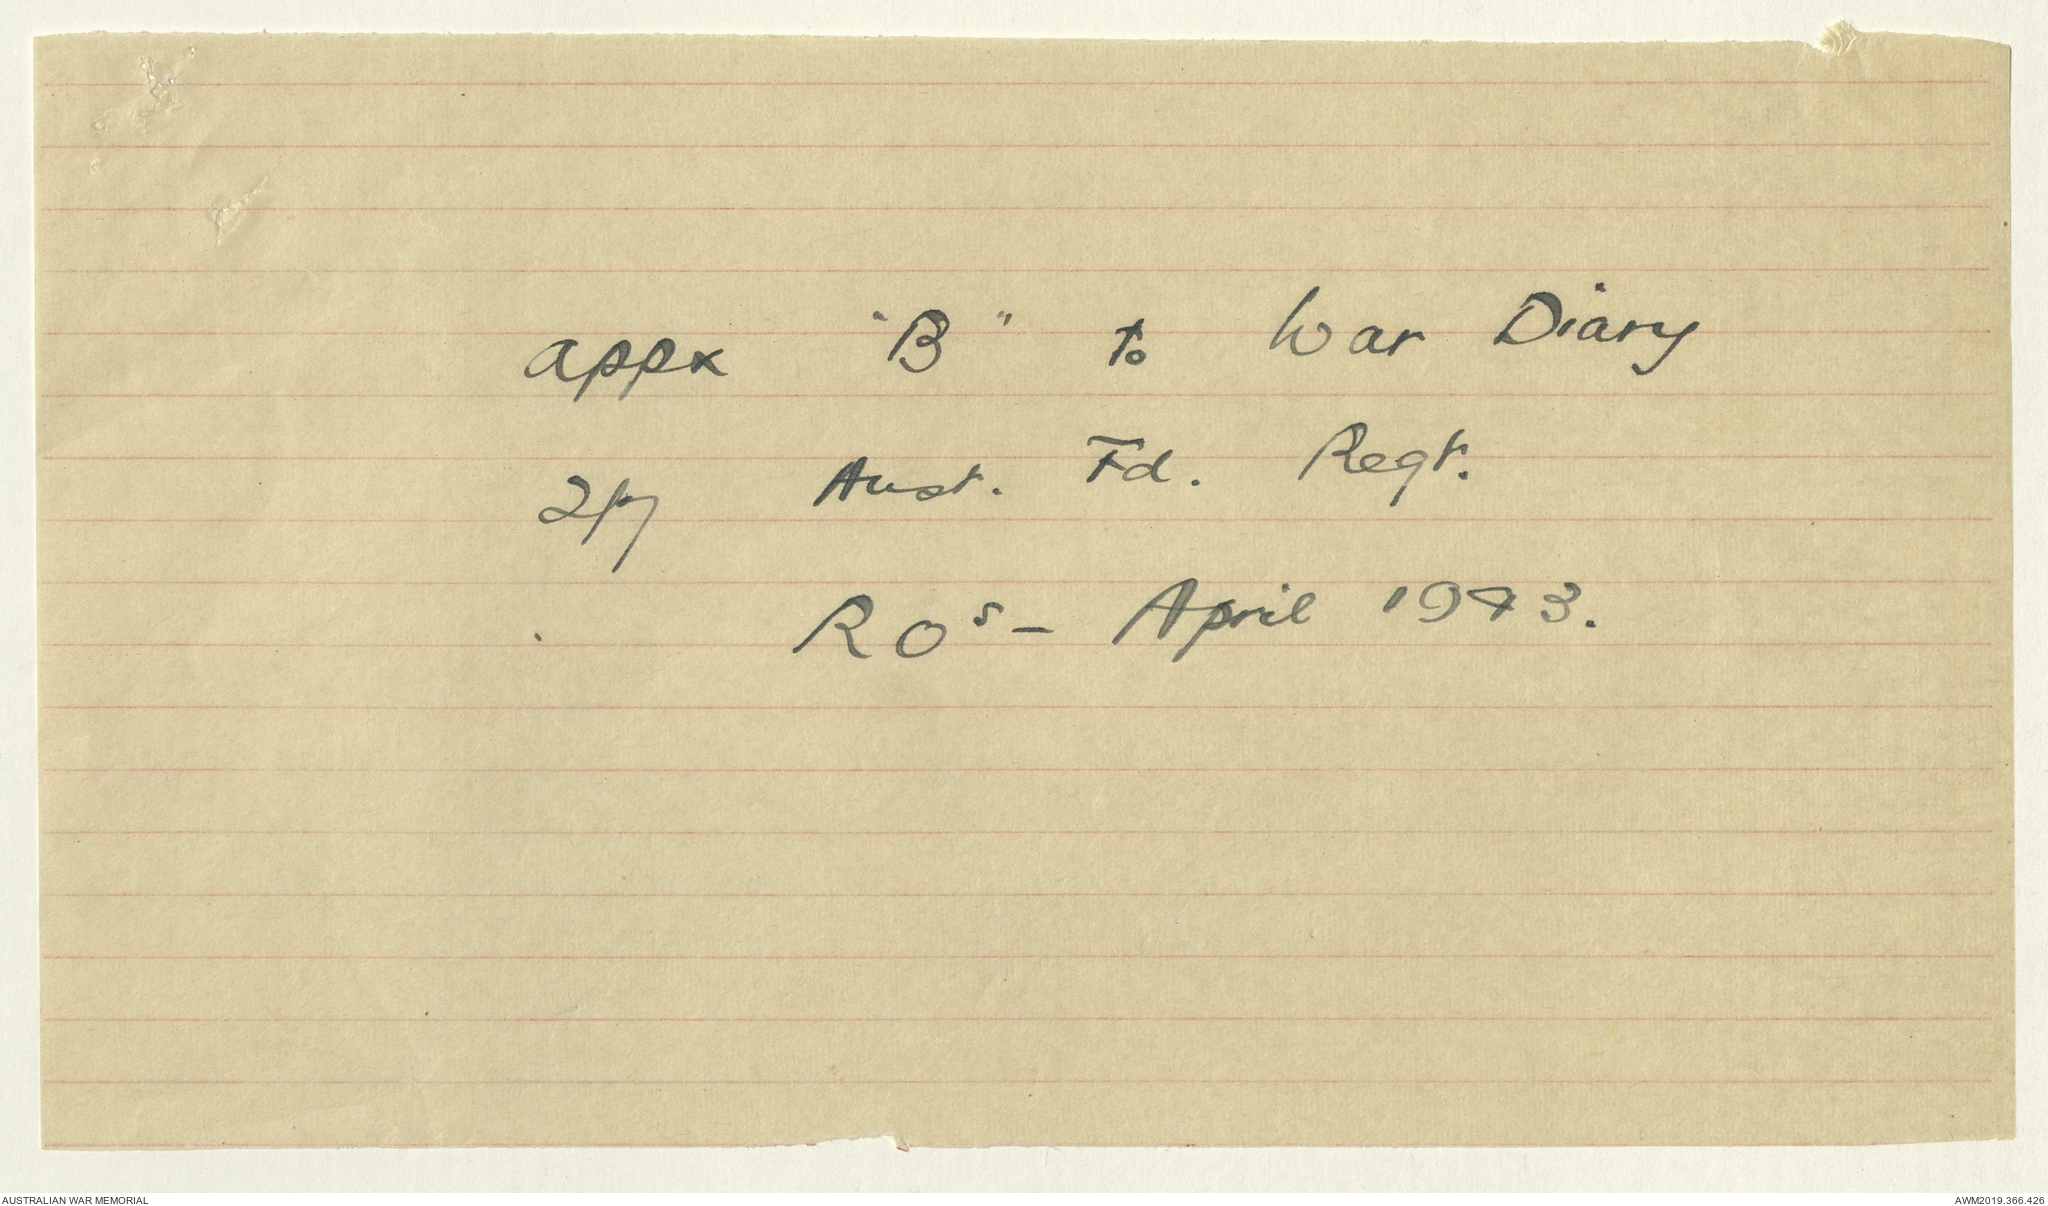 Appx "B" to War Diary
2/7 Aust. Fd. Regt.
ROs - April 1943.
AUSTRALIAN WAR MEMORIAL
AWM2019.366.426